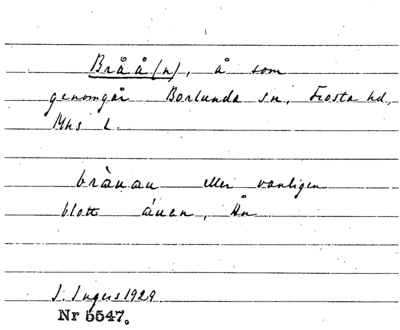 Bråå(n), å som
genomgår Borlunda sn, Frosta hd,
Mhs L.
brå̀nan eller vanligen
blott ánan, Ån
J. Ingers 1929.
Nr 5547.